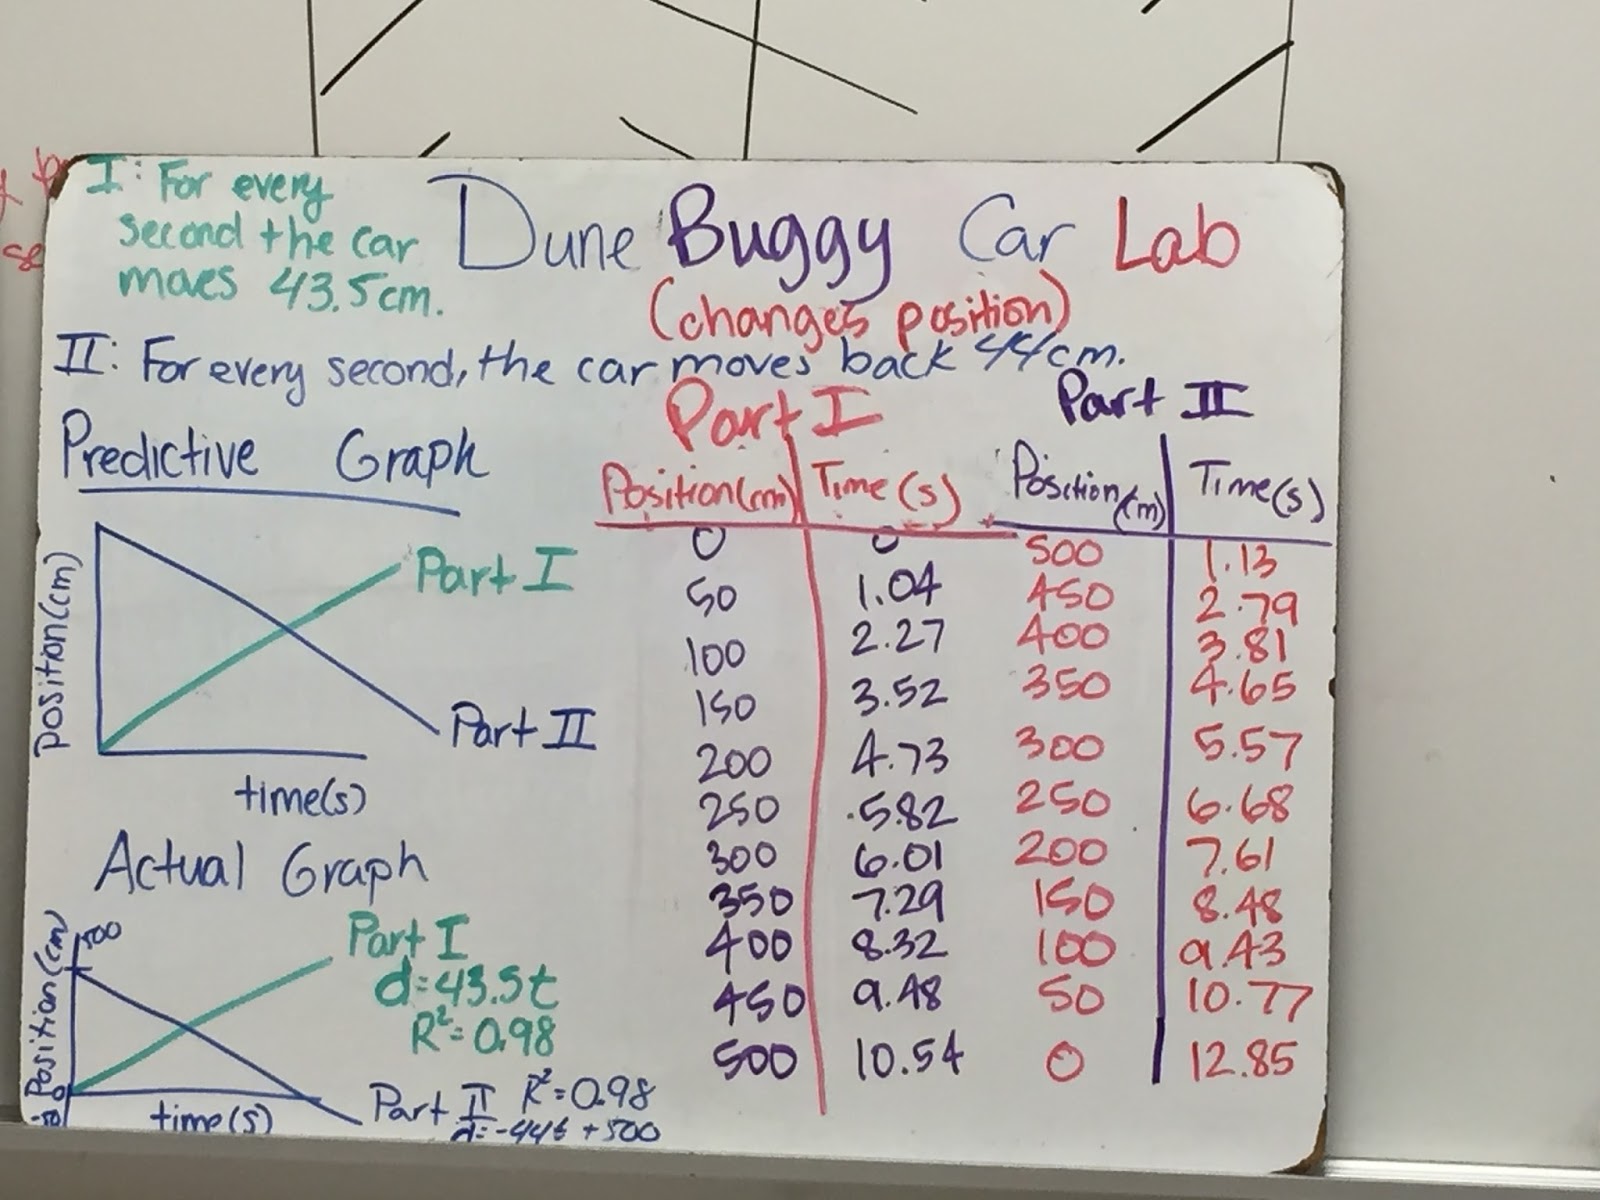 I: For every
second the car
moves 43.5cm.
Dune Buggy Car Lab
(changes position)
II: For every second, the car moves back 44cm.
Predictive Graph
position(cm)
Part I
Part II
time(s)
Actual Graph
Position(cm)
500
0
Part I
d=43.5t
R²=0.98
time(s)
Part II R²=0.98
d=-44t+500
Part I
Position(cm) Time(s)
0 0
50 1.04
100 2.27
150 3.52
200 4.73
250 5.82
300 6.01
350 7.29
400 8.32
450 9.48
500 10.54
Part II
Position(m) Time(s)
500 1.13
450 2.79
400 3.81
350 4.65
300 5.57
250 6.68
200 7.61
150 8.48
100 9.43
50 10.77
0 12.85